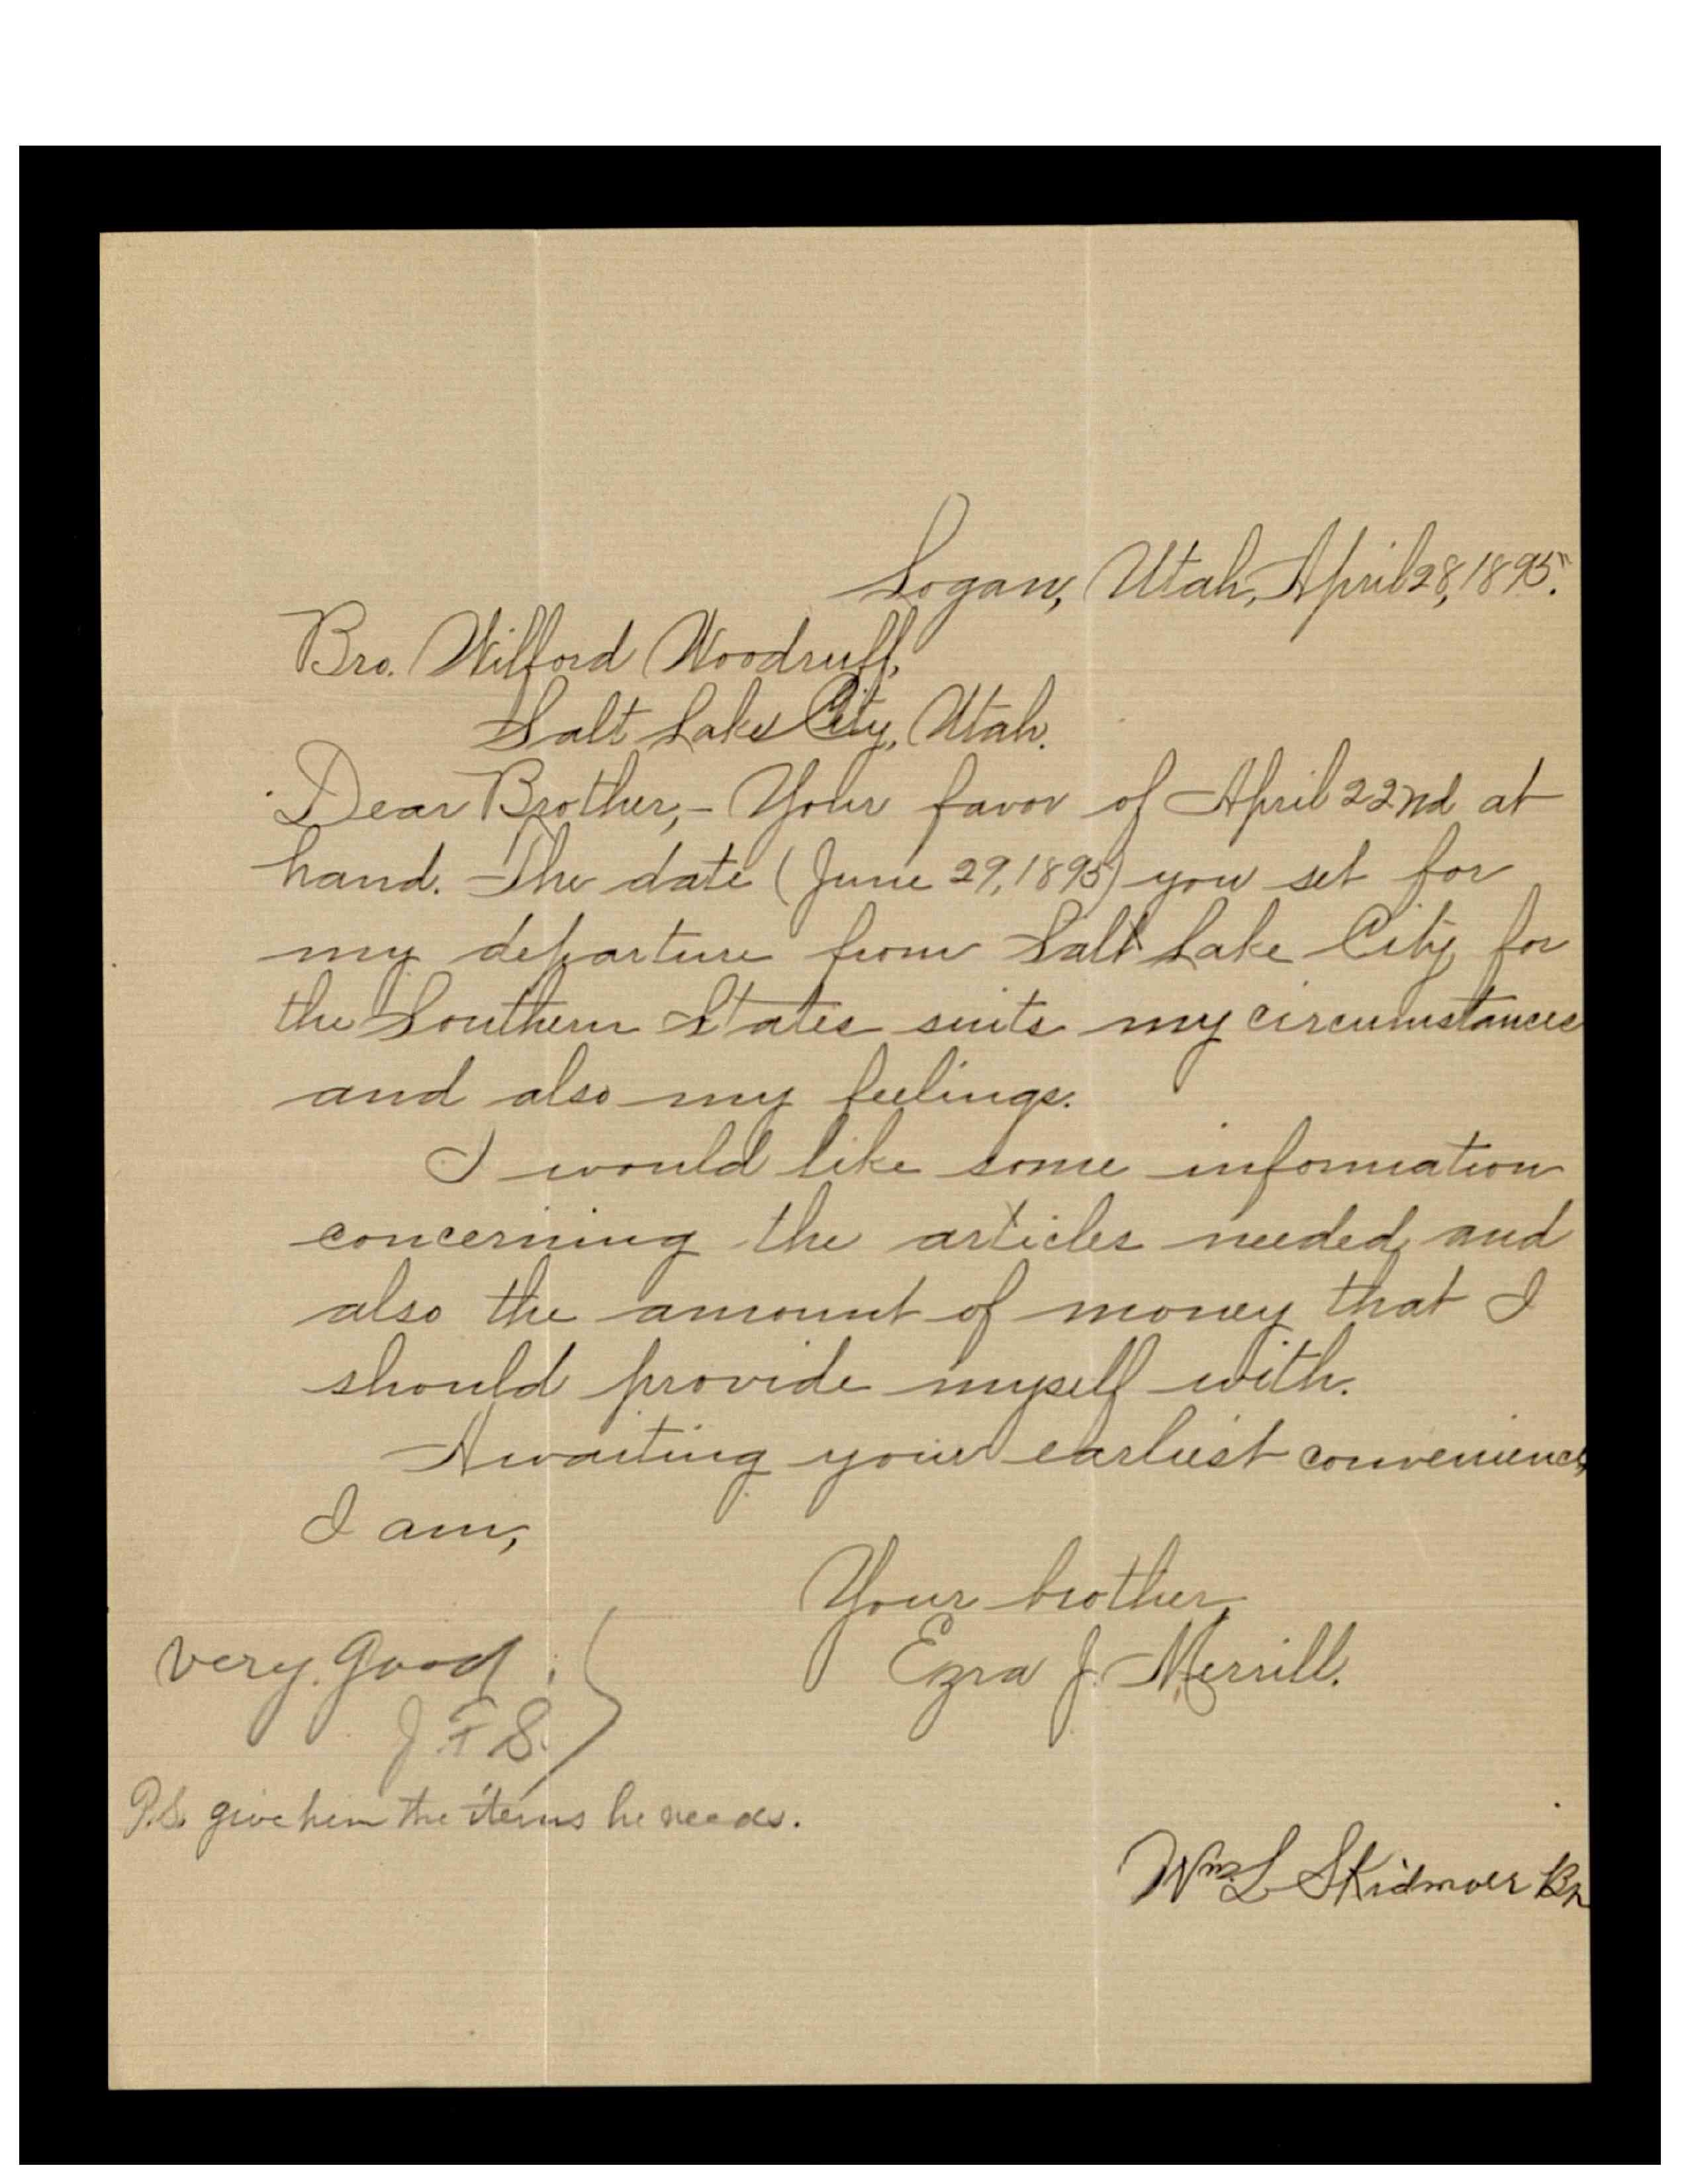 Logan, Utah, April 28, 1895.
Bro. Wilford Woodruff,
Salt Lake City, Utah.
Dear Brother,- Your favor of April 22nd at
hand. The date (June 29, 1895) you set for
my departure from Salt Lake City for
the Southern States suits my circumstances
and also my feelings.
I would like some information
concerning the articles needed, and
also the amount of money that I
should provide myself with.
Awaiting your earliest convenience,
I am,
Your brother,
Ezra J. Merrill.
Very good.
J F S.
P.S. give him the items he needs.
Wm L Skidmore Bp